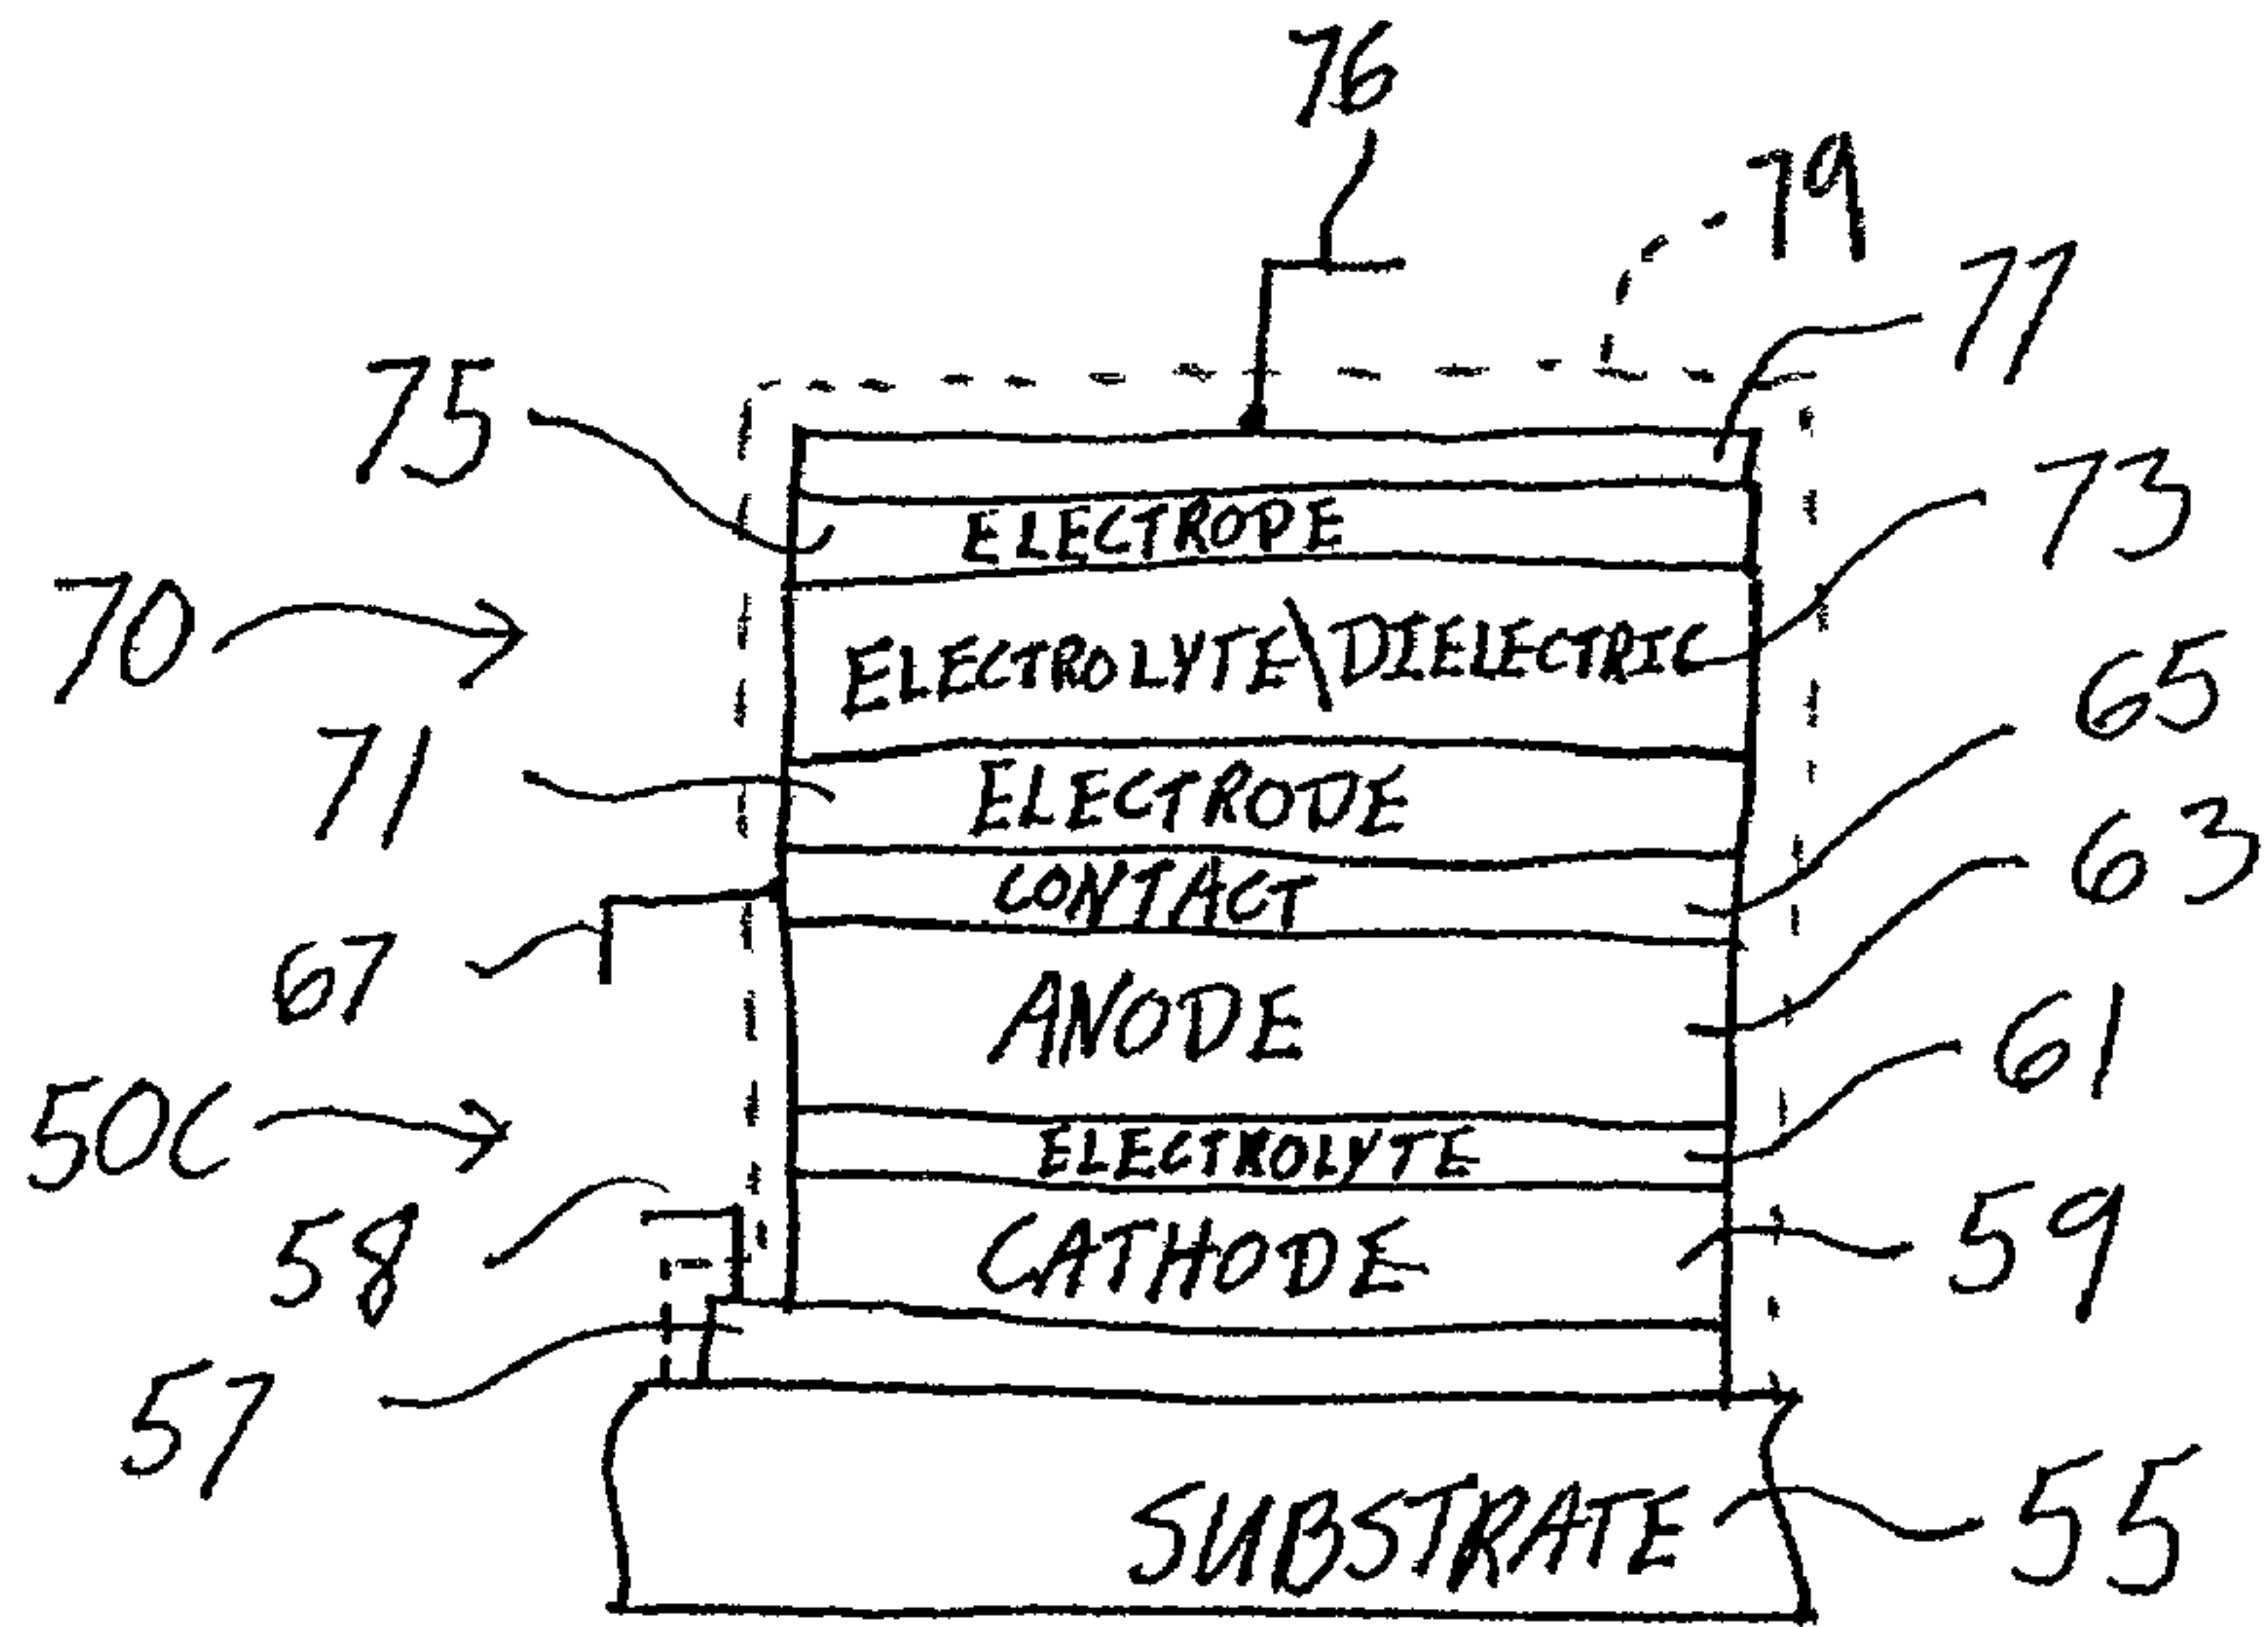 76
79
77
75
ELECTRODE
73
70
ELECTROLYTE\DIELECTRIC
65
71
ELECTRODE
63
CONTACT
67
ANODE
61
50C
ELECTROLYTE
58
CATHODE
59
57
SUBSTRATE
55